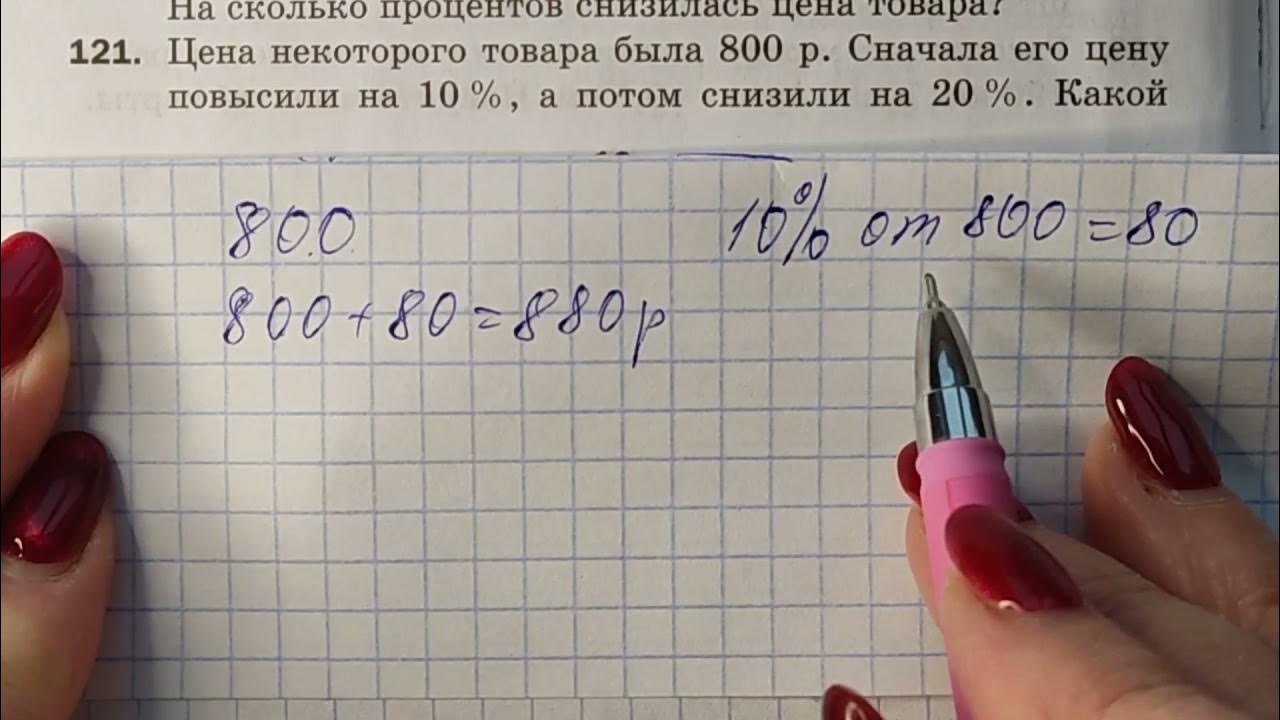 На сколько процентов снизилась цена товара?
121. Цена некоторого товара была 800 р. Сначала его цену
повысили на 10 %, а потом снизили на 20 %. Какой
800
10% от 800 = 80
800 + 80 = 880 р